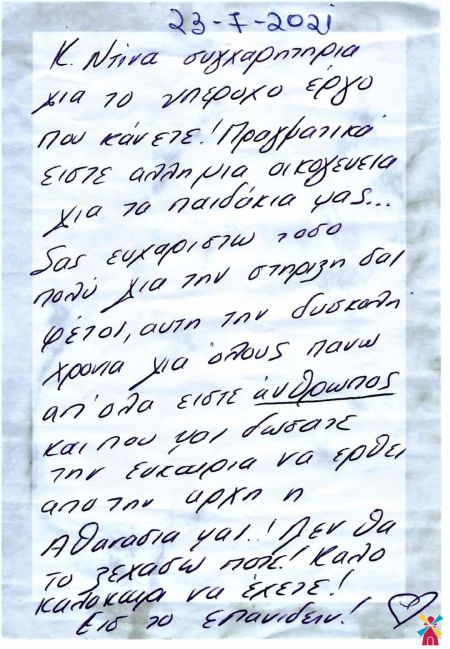 23-7-2021
Κ. Ντίνα συγχαρητηρια
για το υπεροχο έργο
που κάνετε! Πραγματικά
ειστε αλλη μια οικογενεια
για τα παιδάκια μας...
Σας ευχαριστω τοσο
πολύ για την στηριξη σας
φέτος, αυτη την δυσκολη
χρονια για όλους πανω
απ' ολα ειστε άνθρωπος
και που μας δωσατε
την ευκαιρια να ερθει
απο την αρχη η
Αθανασια μας..! Δεν θα
το ξεχασω ποτε! Καλο
καλοκαιρι να έχετε!
Εις το επανιδειν!